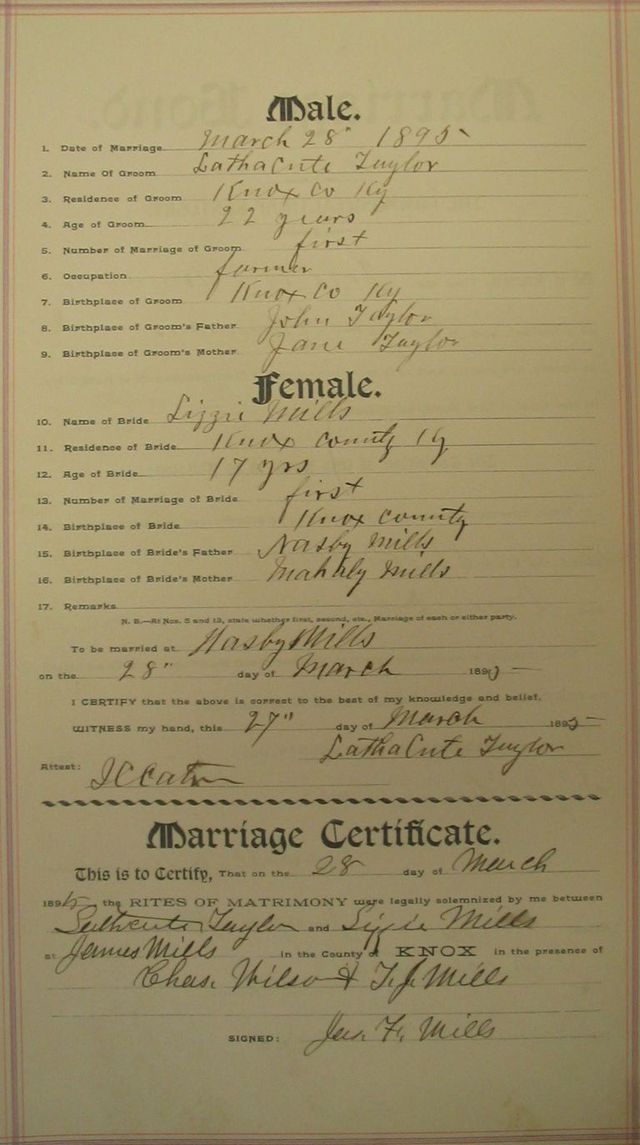 Male.
1. Date of Marriage March 28" 1895
2. Name Of Groom LathaCute Taylor
3. Residence of Groom Knox Co Ky
4. Age of Groom 22 years
5. Number of Marriage of Groom first
6. Occupation farmer
7. Birthplace of Groom Knox Co Ky
8. Birthplace of Groom's Father John Taylor
9. Birthplace of Groom's Mother Jane Taylor
Female.
10. Name of Bride Lizzie Mills
11. Residence of Bride Knox County Ky
12. Age of Bride 17 yrs
13. Number of Marriage of Bride first
14. Birthplace of Bride Knox County
15. Birthplace of Bride's Father Nasby Mills
16. Birthplace of Bride's Mother Mahaly Mills
17. Remarks
N. B.—At Nos. 5 and 13, state whether first, second, etc., Marriage of each or either party.
To be married at Nasby Mills
on the 28" day of March 1895
I CERTIFY that the above is correct to the best of my knowledge and belief.
WITNESS my hand, this 27" day of March 1895
LathaCute Taylor
Attest:
Marriage Certificate.
This is to Certify, That on the 28 day of March
1895 the RITES OF MATRIMONY were legally solemnized by me between
Lathacute Taylor and Lizzie Mills
at James Mills in the County of KNOX in the presence of
Chas. Wilson & T. J. Mills
SIGNED: Jas. F. Mills